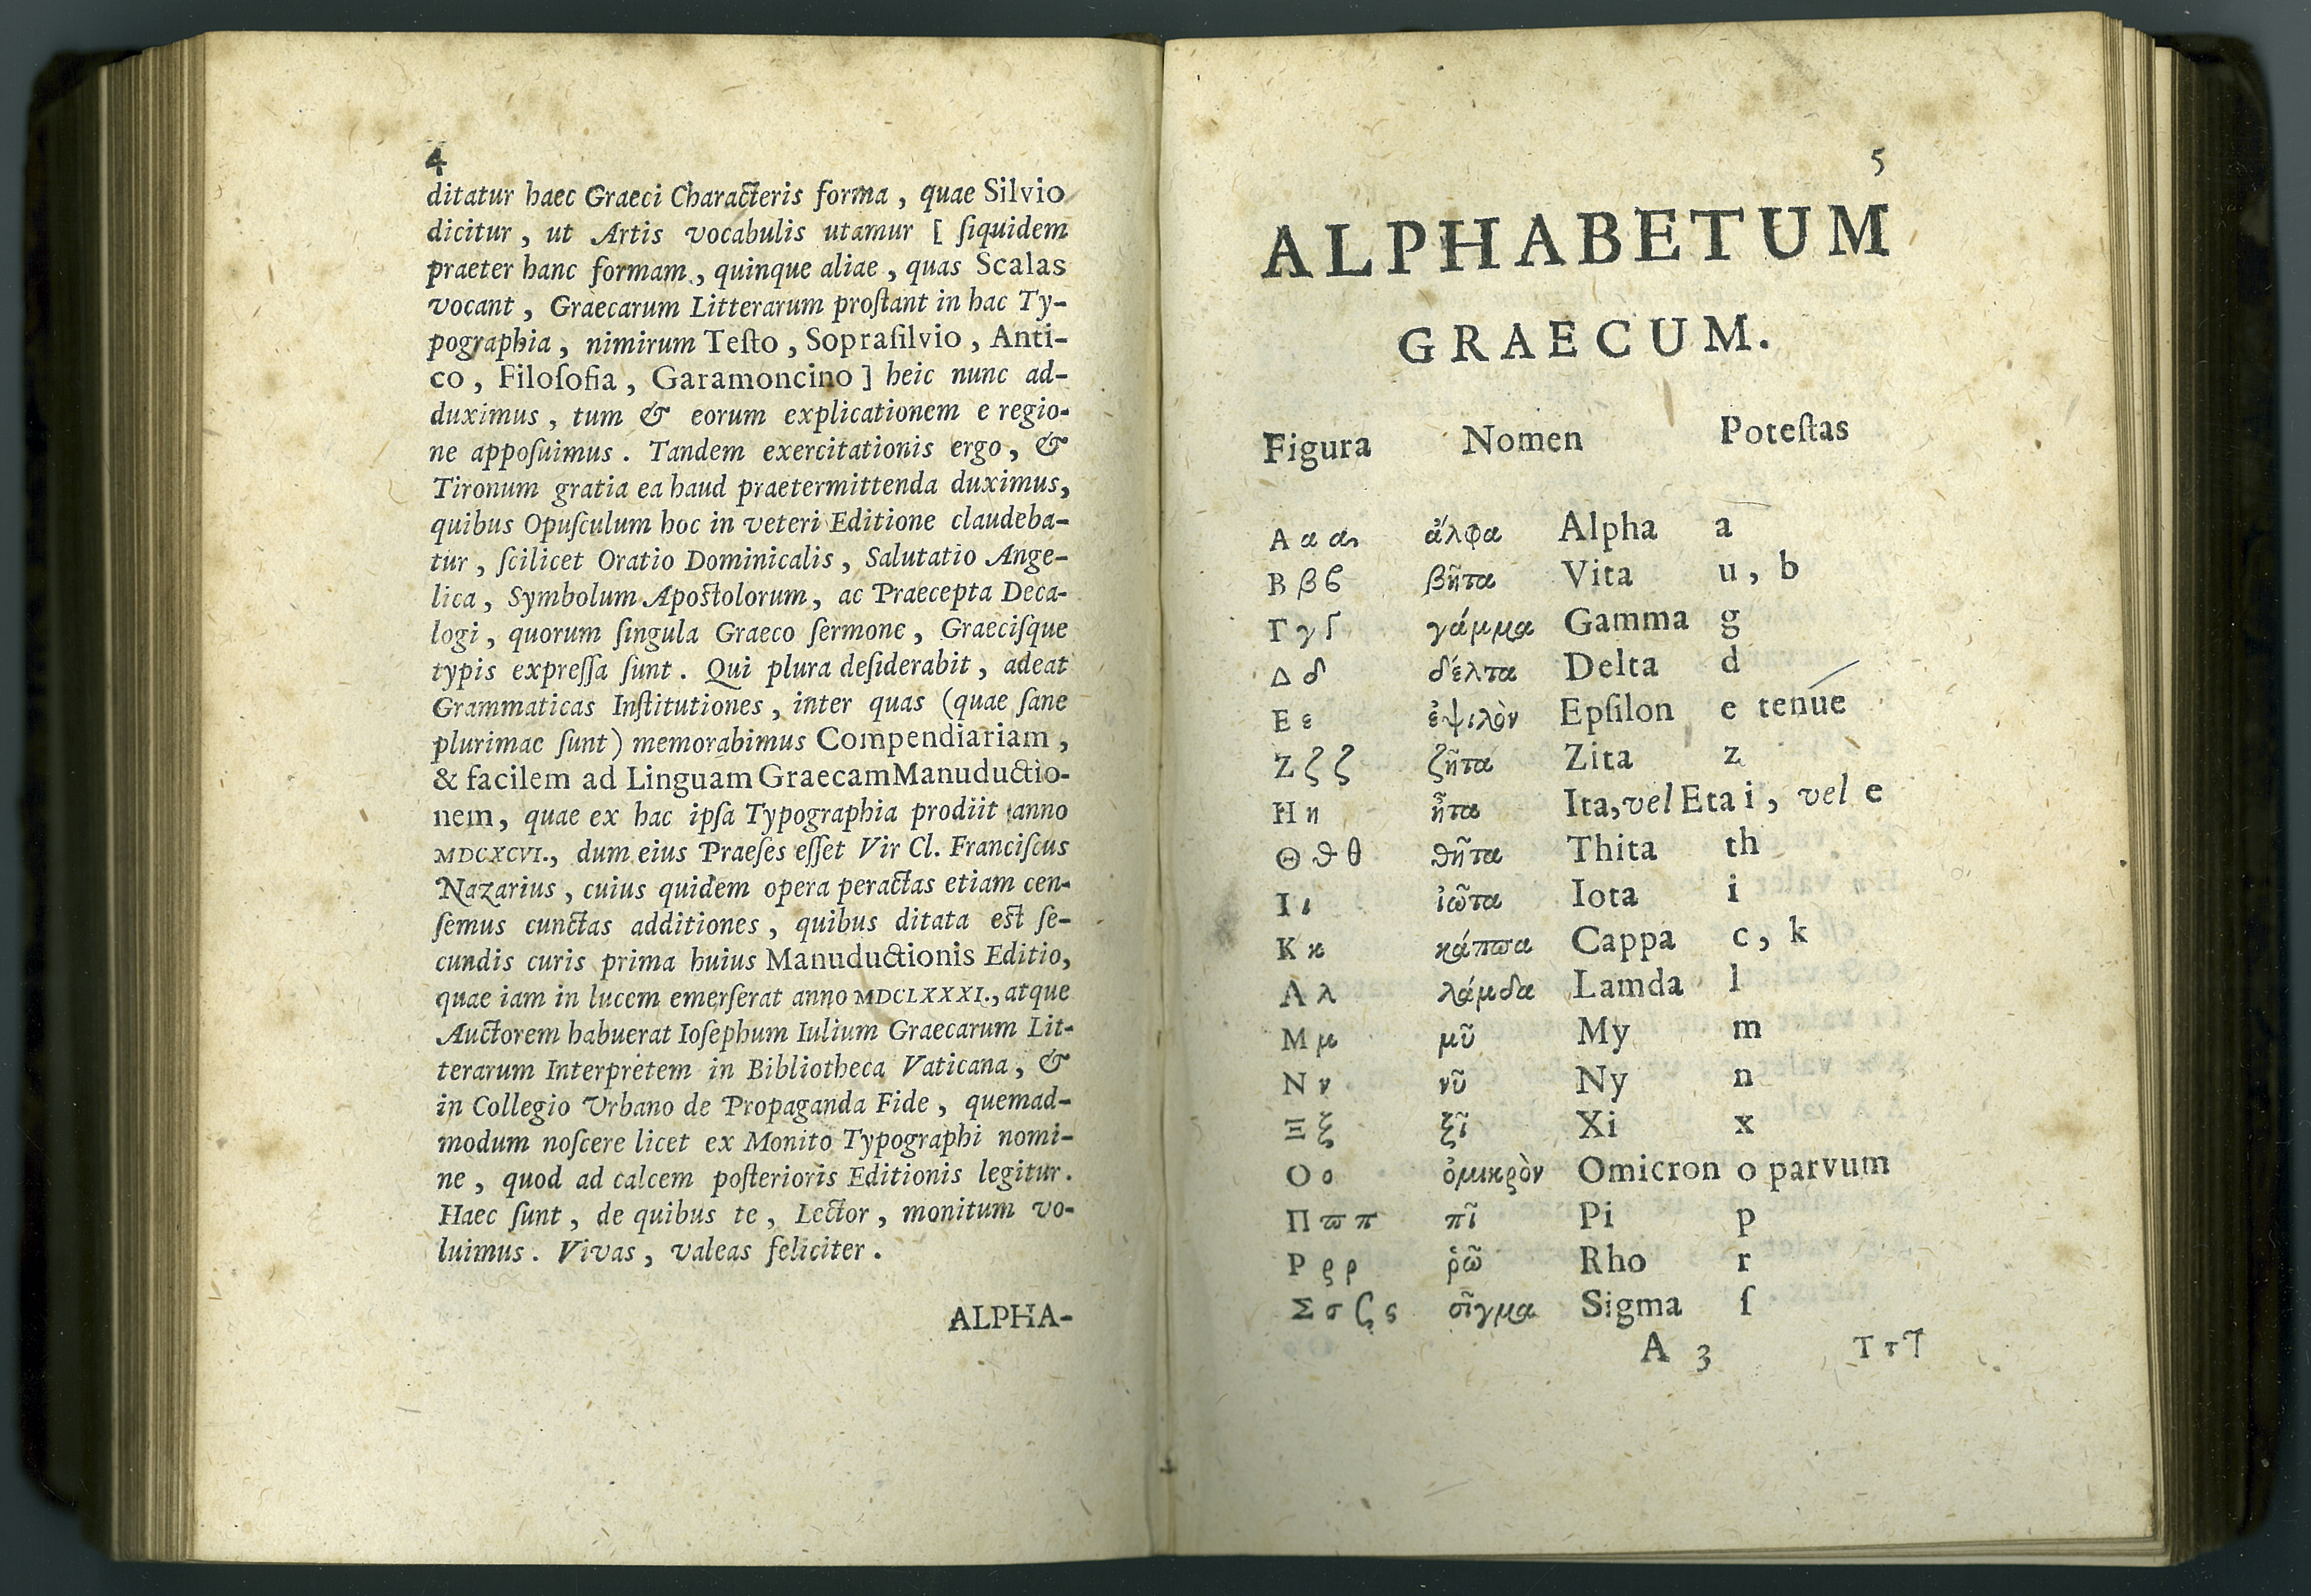 4
ditatur haec Graeci Characteris forma , quae Silvio
dicitur , ut Artis vocabulis utamur [ ſiquidem
praeter hanc formam , quinque aliae , quas Scalas
vocant , Graecarum Litterarum proſtant in hac Ty-
pographia , nimirum Teſto , Sopraſilvio , Anti-
co , Filoſofia , Garamoncino ] heic nunc ad-
duximus , tum & eorum explicationem e regio-
ne appoſuimus . Tandem exercitationis ergo , &
Tironum gratia ea haud praetermittenda duximus,
quibus Opuſculum hoc in veteri Editione claudeba-
tur , ſcilicet Oratio Dominicalis , Salutatio Ange-
lica , Symbolum Apoſtolorum , ac Praecepta Deca-
logi , quorum ſingula Graeco ſermone , Graeciſque
typis expreſſa ſunt . Qui plura deſiderabit , adeat
Grammaticas Inſtitutiones , inter quas (quae ſane
plurimae ſunt) memorabimus Compendiariam ,
& facilem ad Linguam Graecam Manuductio-
nem, quae ex hac ipſa Typographia prodiit anno
MDCXCVI., dum eius Praeſes eſſet Vir Cl. Franciſcus
Nazarius , cuius quidem opera peractas etiam cen-
ſemus cunctas additiones , quibus ditata eſt ſe-
cundis curis prima huius Manuductionis Editio,
quae iam in lucem emerſerat anno MDCLXXXI., atque
Auctorem habuerat Ioſephum Iulium Graecarum Lit-
terarum Interpretem in Bibliotheca Vaticana , &
in Collegio Urbano de Propaganda Fide , quemad-
modum noſcere licet ex Monito Typographi nomi-
ne , quod ad calcem poſterioris Editionis legitur .
Haec ſunt , de quibus te , Lector , monitum vo-
luimus . Vivas , valeas feliciter .
ALPHA-
5
ALPHABETUM
GRAECUM.
Figura Nomen Poteſtas
Α α α ἄλφα Alpha a
Β β ϐ βῆτα Vita u , b
Γ γ γάμμα Gamma g
Δ δ δέλτα Delta d
Ε ε ἐψιλὸν Epſilon e tenue
Ζ ζ ζ ζῆτα Zita z
Η η ἦτα Ita, vel Eta i , vel e
Θ ϑ θ ϑῆτα Thita th
Ι ι ἰῶτα Iota i
Κ κ κάπϖα Cappa c , k
Λ λ λάμδα Lamda l
Μ μ μῦ My m
Ν ν νῦ Ny n
Ξ ξ ξῖ Xi x
Ο ο ὀμικρὸν Omicron o parvum
Π ϖ π πῖ Pi p
Ρ ϱ ρ ῥῶ Rho r
Σ σ ς σῖγμα Sigma ſ
A 3 Τ τ